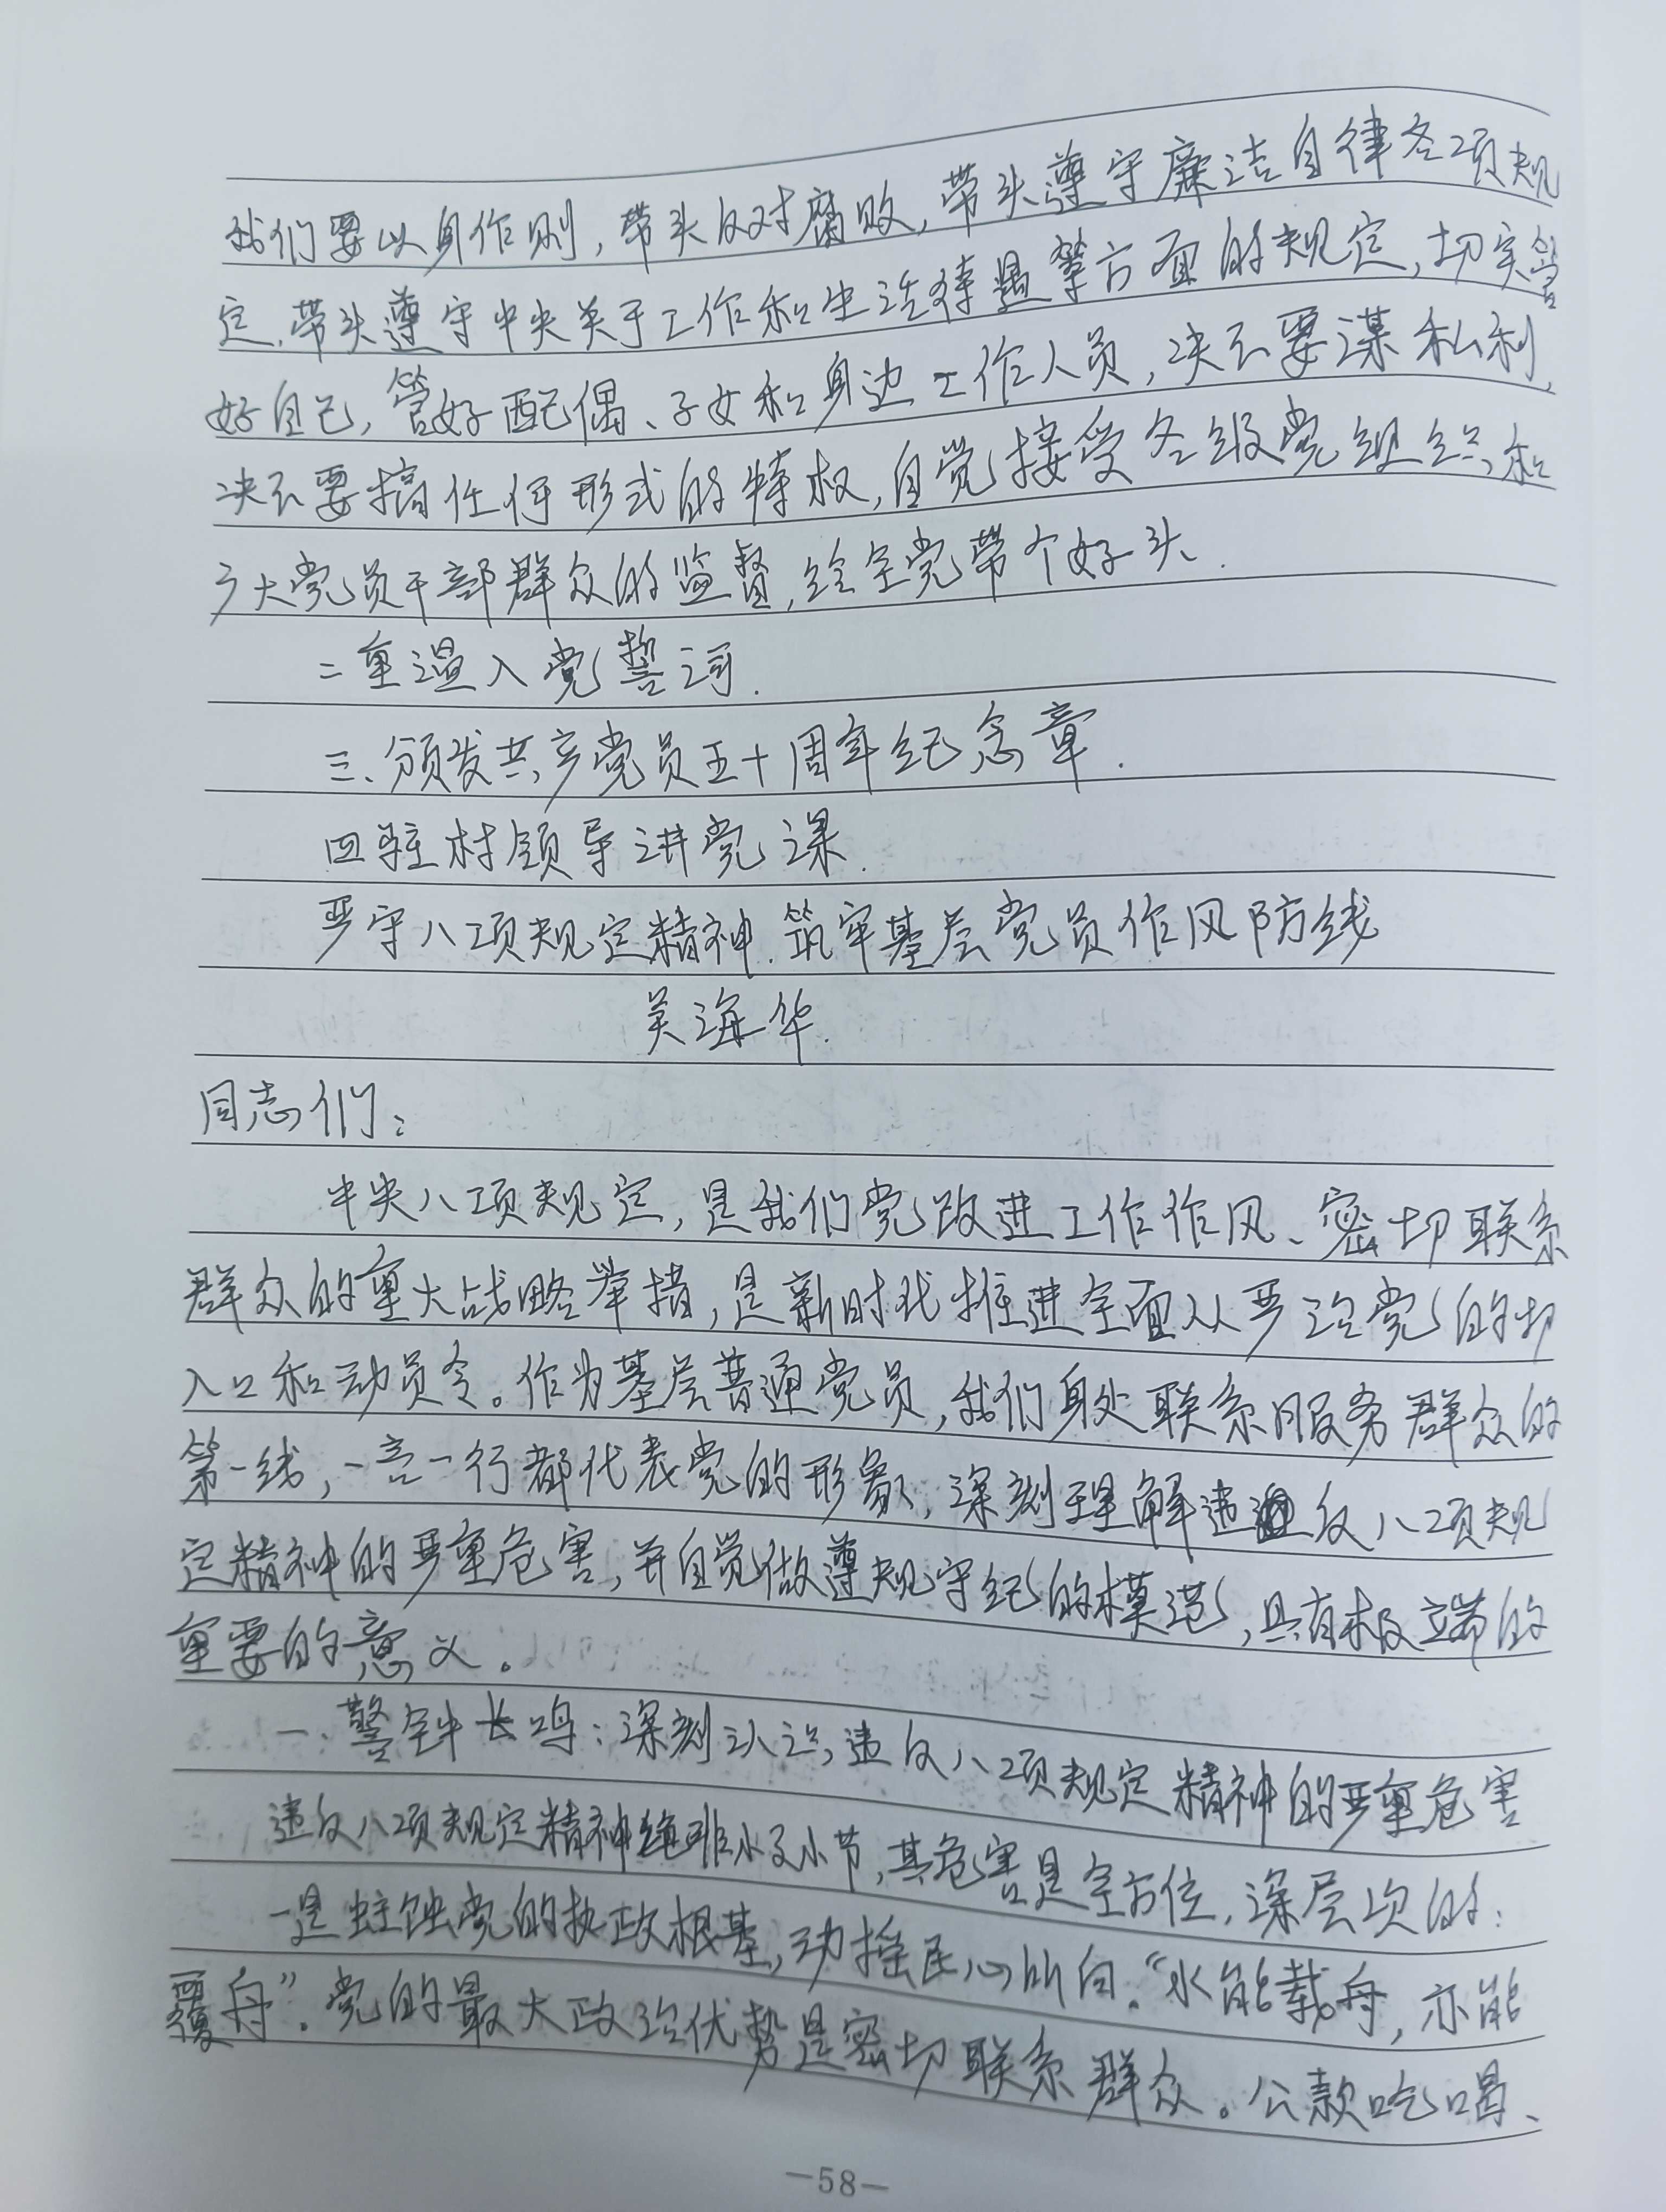 我们要以身作则,带头反对腐败,带头遵守廉洁自律各项规
定.带头遵守中央关于工作和生活待遇等方面的规定,切实管
好自己,管好配偶、子女和身边工作人员,决不要谋私利,
决不要搞任何形式的特权,自觉接受各级党组织和
广大党员干部群众的监督,给全党带个好头.
二重温入党誓词.
三、颁发共产党员五十周年纪念章.
四驻村领导讲党课.
严守八项规定精神.筑牢基层党员作风防线
吴海华.
同志们:
中央八项规定,是我们党改进工作作风、密切联系
群众的重大战略举措,是新时代推进全面从严治党的切
入口和动员令。作为基层普通党员,我们身处联系服务群众的
第一线,一言一行都代表党的形象,深刻理解违反八项规
定精神的严重危害,并自觉做遵规守纪的模范,具有极端的
重要的意义。
一.警钟长鸣:深刻认识违反八项规定精神的严重危害
违反八项规定精神绝非小事小节,其危害是全方位,深层次的:
一是蛀蚀党的执政根基,动摇民心所向.“水能载舟,亦能
覆舟”.党的最大政治优势是密切联系群众。公款吃喝、
—58—